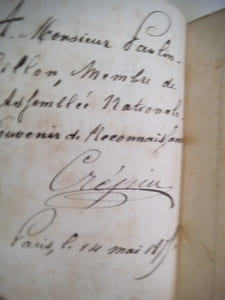 A Monsieur Paulin-
Gillon, Membre de
l'Assemblée Nationale.
Souvenir de Reconnaissan
Crépin
Paris, le 14 mai 187